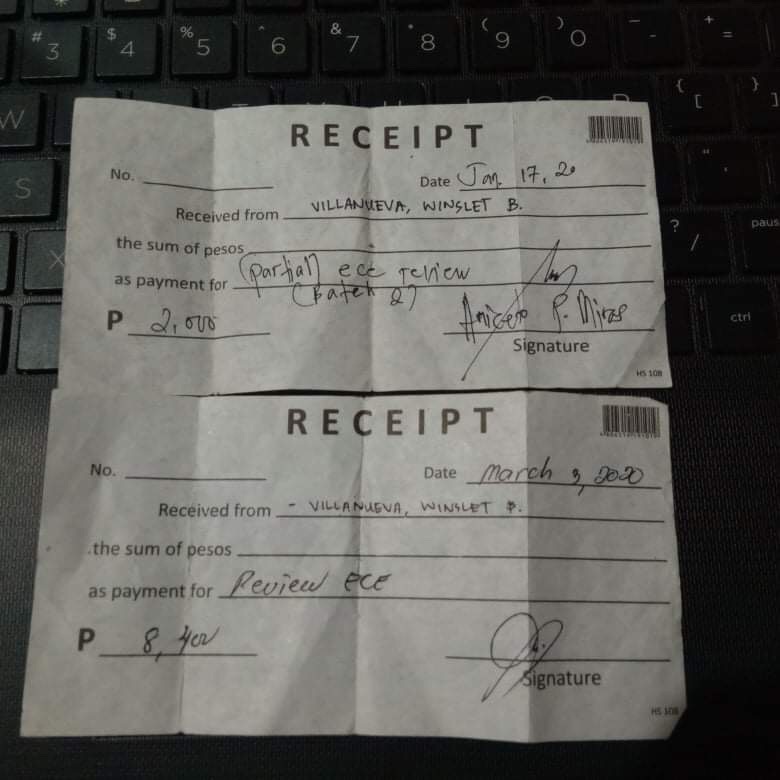 #
3
$
4
%
5
^
6
&
7
*
8
(
9
)
0
-
+
=
W
{
[
}
]
S
"
'
?
/
X
pause
ctrl
RECEIPT
No.
Date Jan. 17, 20
Received from VILLANUEVA, WINSLET B.
the sum of pesos
as payment for (partial) ece review
(Batch 2)
P 2,000
Signature
HS 108
RECEIPT
No.
Date March 3, 2020
Received from - VILLANUEVA, WINSLET B.
the sum of pesos
as payment for Review ECE
P 8,400
Signature
HS 108